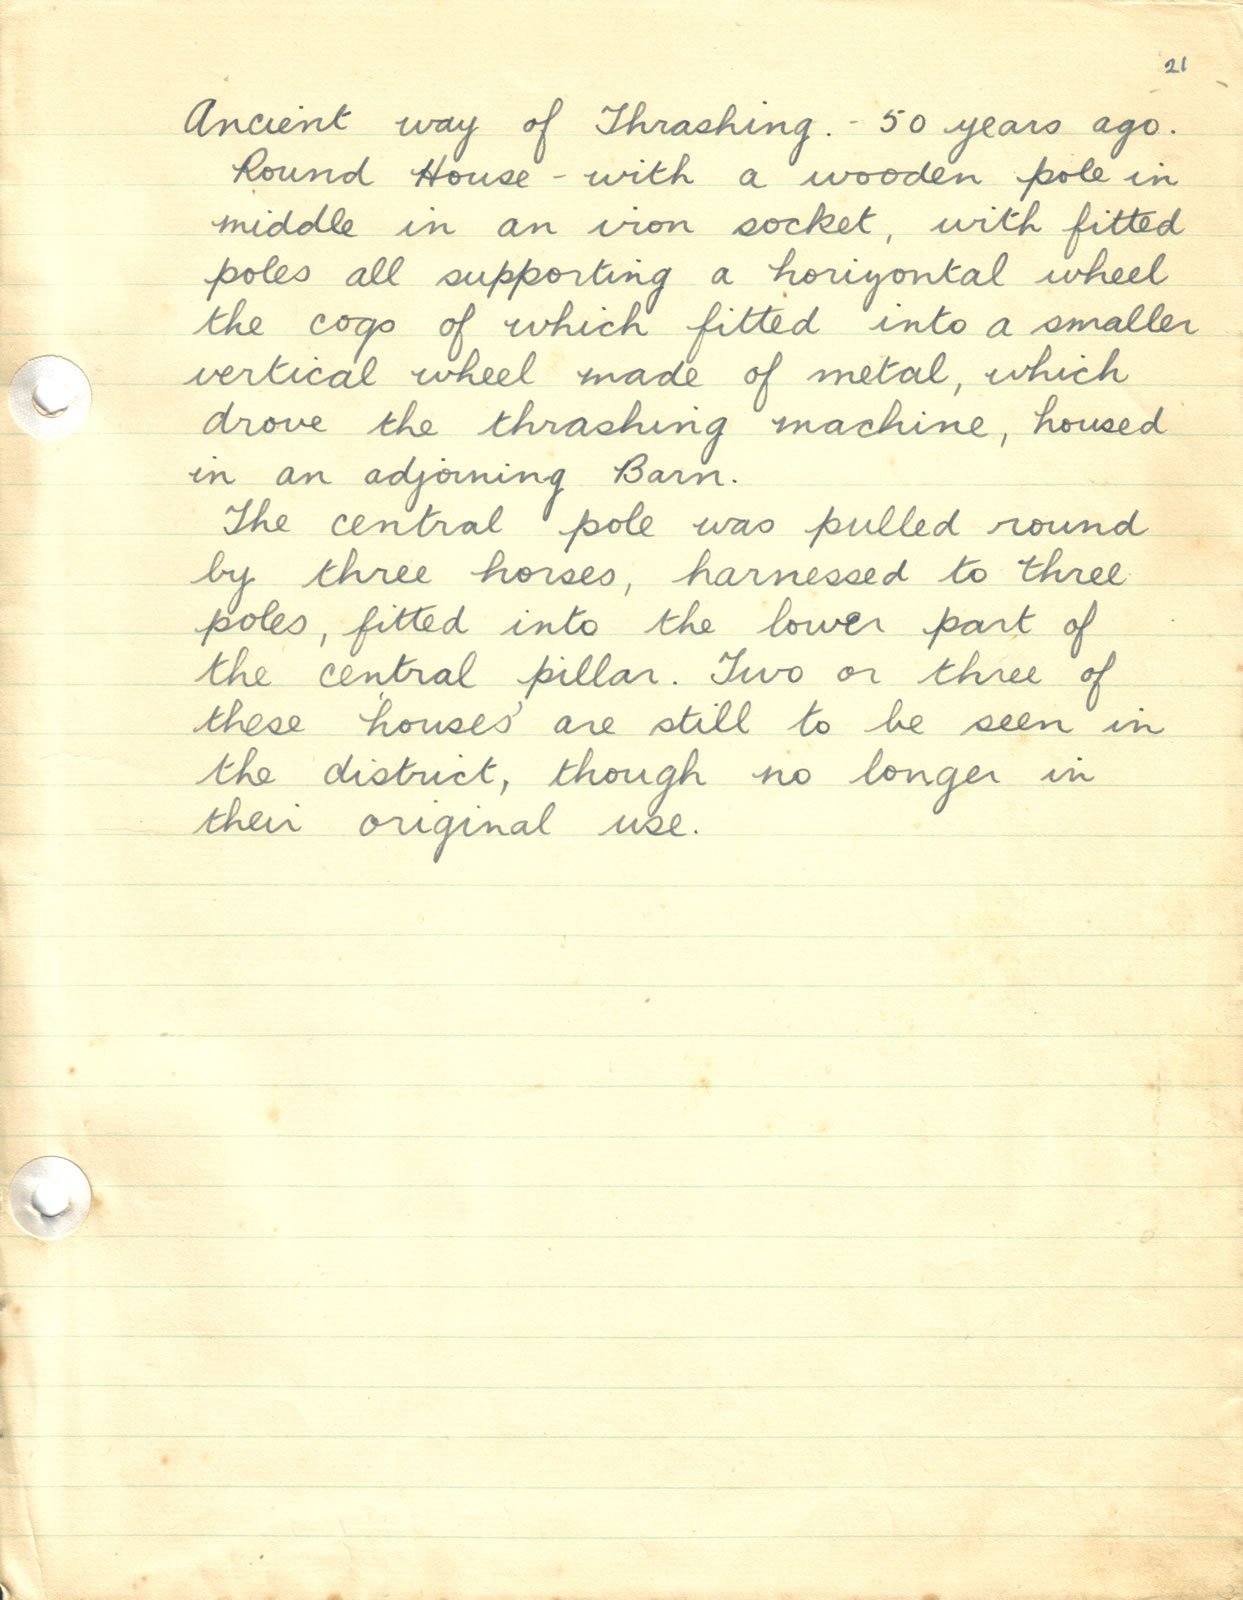 21
Ancient way of Thrashing. - 50 years ago.
Round House - with a wooden pole in
middle in an iron socket, with fitted
poles all supporting a horizontal wheel
the cogs of which fitted into a smaller
vertical wheel made of metal, which
drove the thrashing machine, housed
in an adjoining Barn.
The central pole was pulled round
by three horses, harnessed to three
poles, fitted into the lower part of
the central pillar. Two or three of
these 'houses' are still to be seen in
the district, though no longer in
their original use.